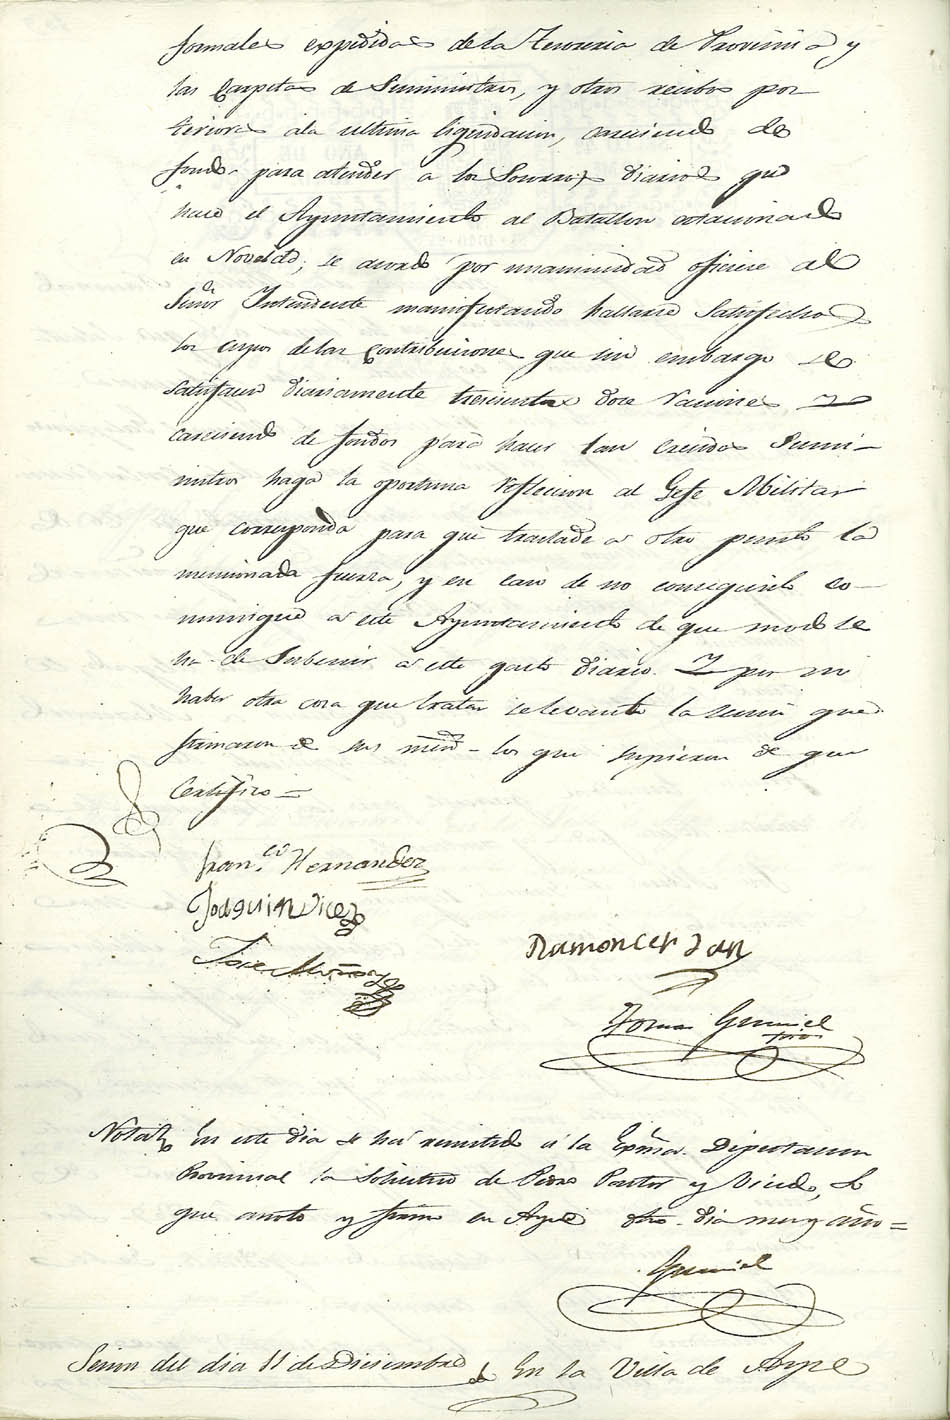 formales expedidas de la Tesoreria de Provincia y
las Carpetas de Suministros, y otros recibos pos
teriores ala ultima liquidacion, careciendo de
fondos para atender a los Socorros diarios que
hace el Ayuntamiento al Batallon estacionado
en Novelda; se acordó por unanimidad oficiese al
Señor Intendente manifestando hallarse satisfechos
los cupos de las Contribuciones que sin embargo se
satisfacen diariamente trescientas doce raciones y
careciendo de fondos para hacer tan crecidos Sumi-
nistros haga la oportuna reflecsion al Gefe Militar
que corresponda para que traslade a otro punto la
mencionada fuerza, y en caso de no conseguirlo co-
munique a este Ayuntamiento de que modo se
ha de Subenir a este gasto diario. Y por no
haber otra cosa que tratar se levantó la sesion que
firmaron de sus mrds - los que supieron de que
Certifico =
Fran.co Hernandez
Joaquin Vicedo
Jose Muñoz
Ramon Cerdan
Tomas Gumiel
srio
Nota En este dia se ha remitido á la Exma. Diputacion
Provincial la solicitud de Pedro Pastor y Vicedo, lo
que anoto y firmo en Aspe dho. dia mes y año =
Gumiel
Sesion del dia 11 de Diciembre En la Villa de Aspe